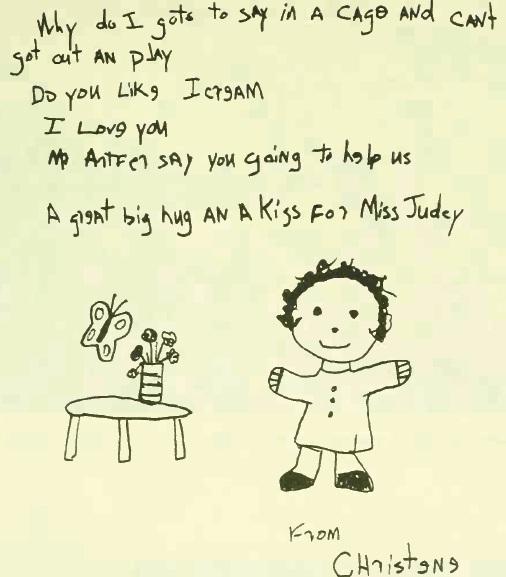 Why do I gots to say in A CAge AND CANt
got out AN play
Do you Like I cream
I Love you
Mr Artter SAy you going to help us
A great big hug AN A Kiss For Miss Judey
From
CHristene